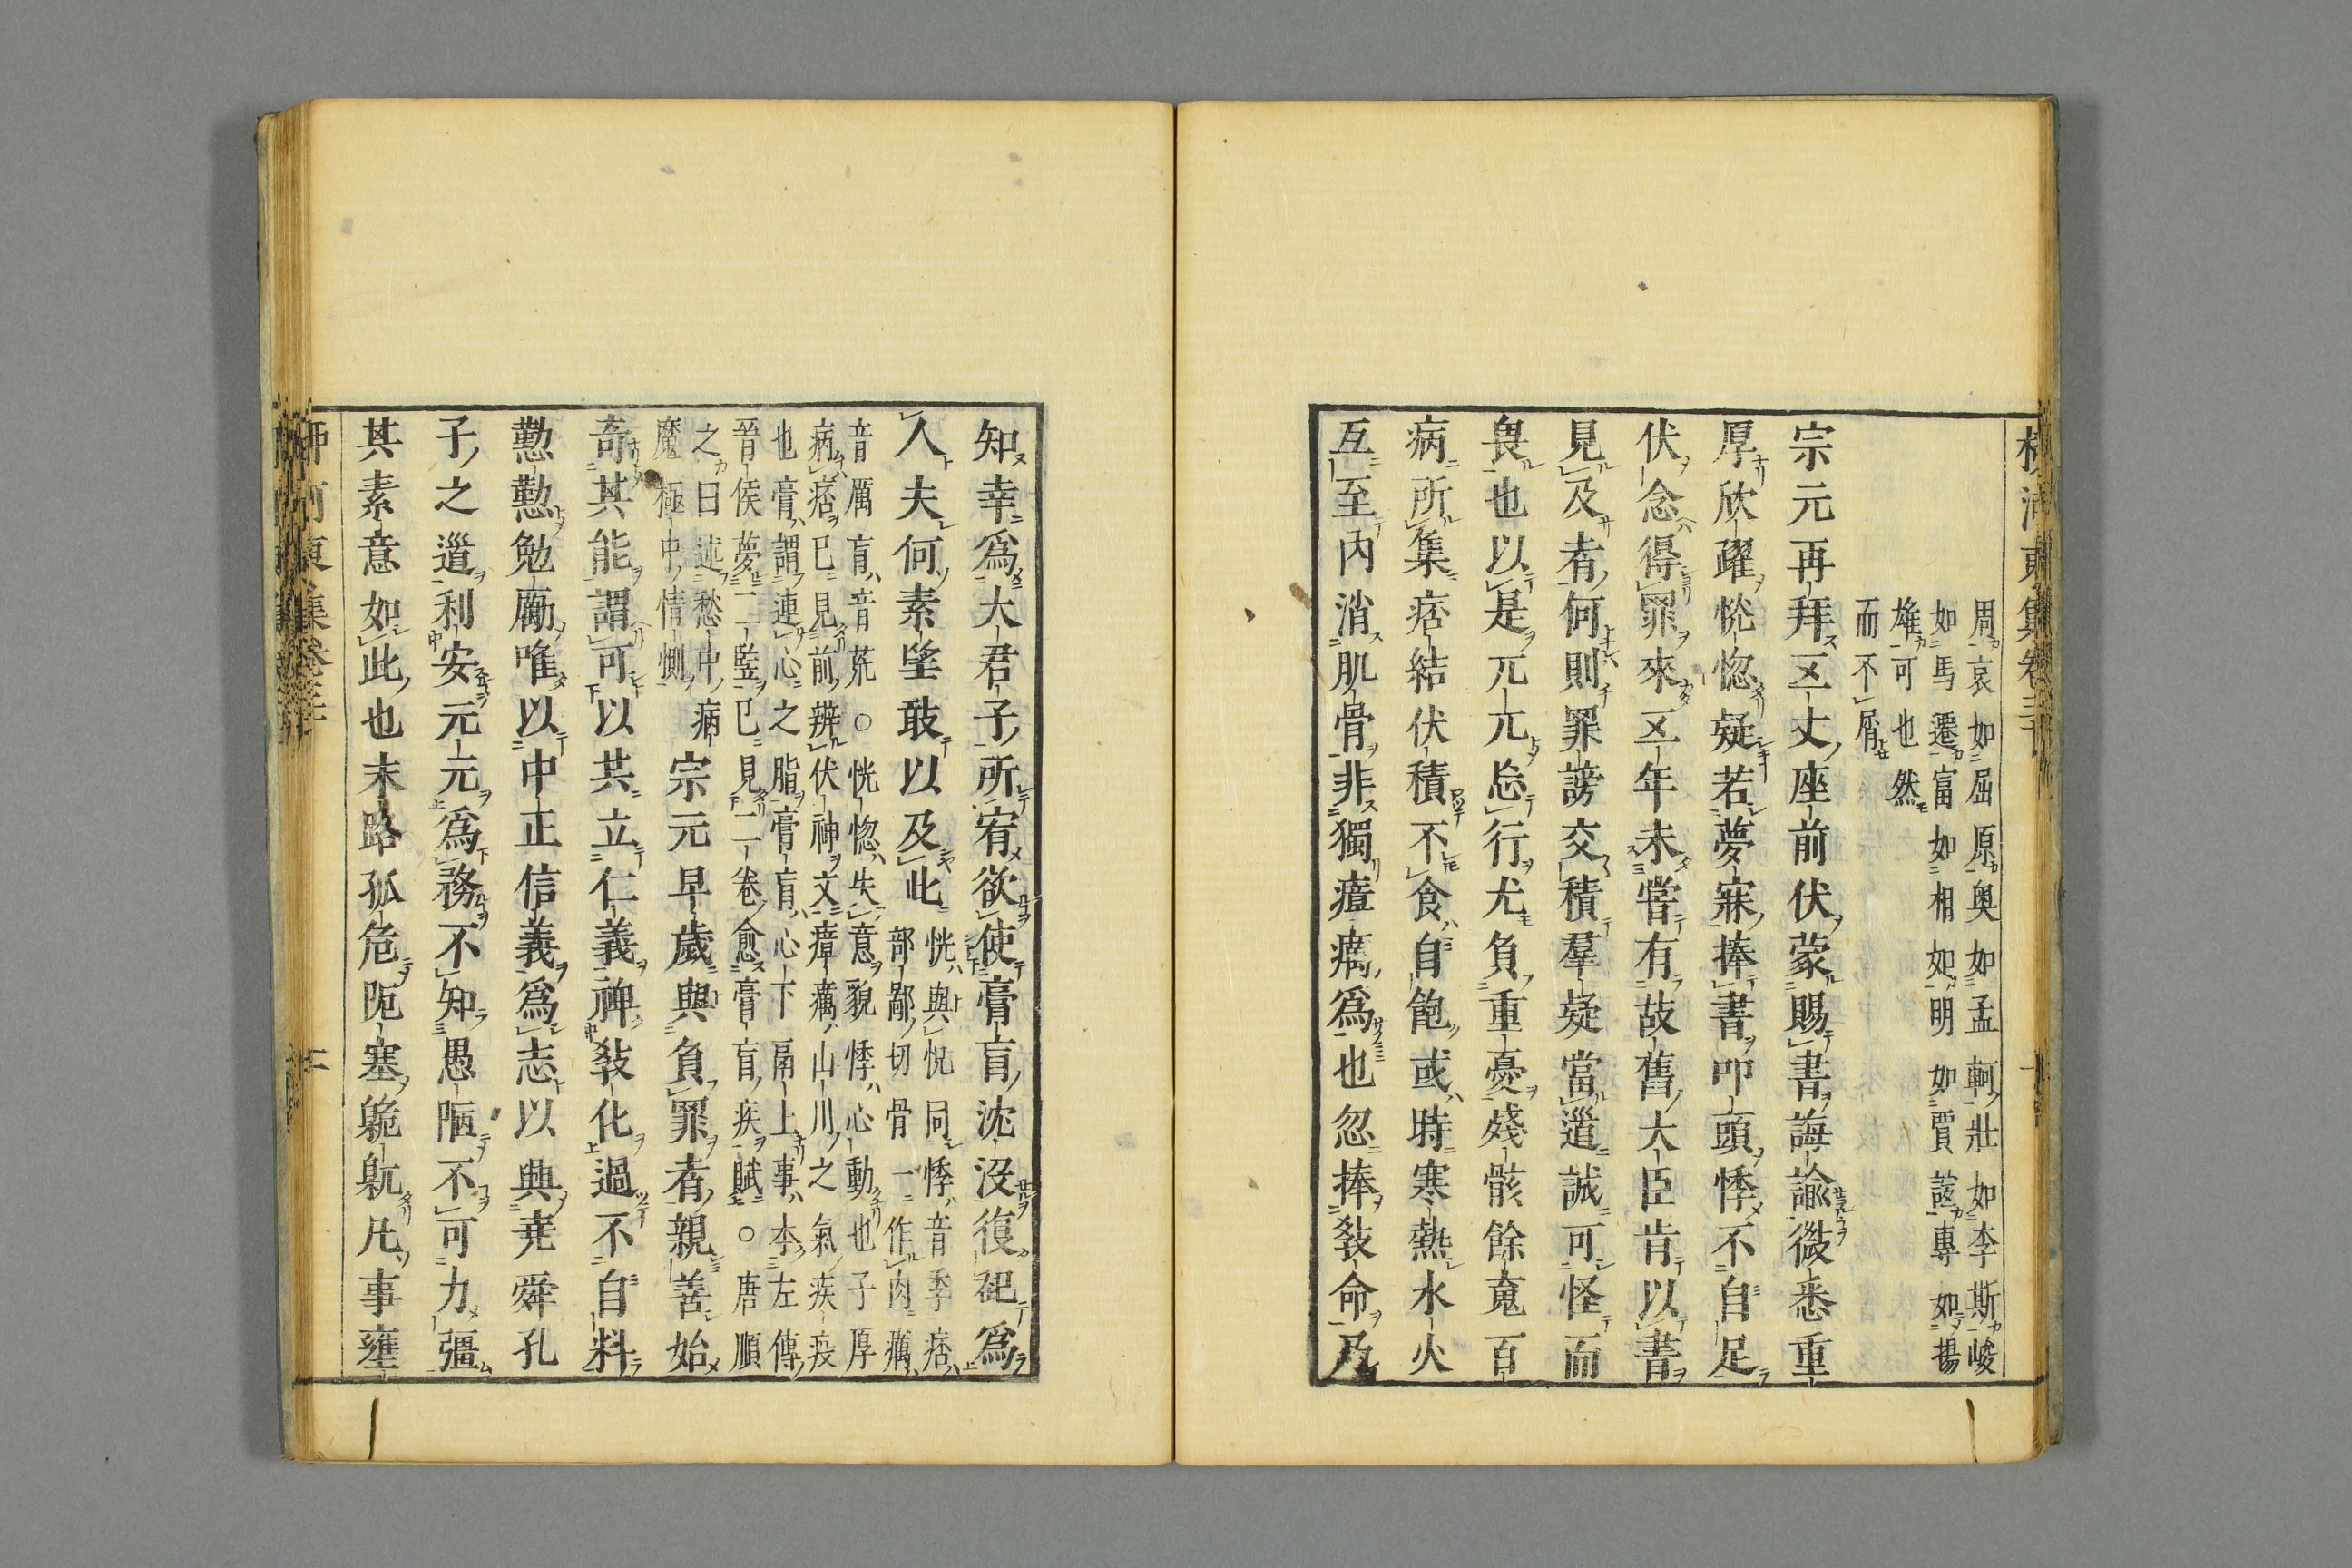 柳河東集卷三十
周哀如屈原奥如孟軻壯如李斯峻
如馬遷富如相如明如賈誼專如揚
雄可也然
而不屑
宗元再拜五丈座前伏蒙賜書誨諭微悉重
厚欣躍恍惚疑若夢寐捧書叩頭悸不自足
伏念得罪來五年未嘗有故舊大臣肯以書
見及者何則罪謗交積羣疑當道誠可怪而
畏也以是兀兀忘行尤負重憂殘骸餘魂百
病所集痞結伏積不食自飽或時寒熱水火
互至內消肌骨非獨瘴癘爲也忽捧敎命乃
知幸爲大君子所宥欲使膏肓沈沒復起爲
人夫何素望敢以及此
恍與怳同悸音季痞
部鄙切骨一作肉癘
音厲肓音荒○恍惚失意貌悸心動也子厚
病痞已見前辨伏神文瘴癘山川之氣疾疫
也膏謂連心之脂膏肓心下鬲上事本左傳
晉侯夢二豎已見二卷愈膏肓疾賦○唐順
之曰述愁中病
魔極中情惻
宗元早歲與負罪者親善始
奇其能謂可以共立仁義裨敎化過不自料
懃懃勉勵唯以中正信義爲志以興堯舜孔
子之道利安元元爲務不知愚陋不可力彊
其素意如此也末路孤危阨塞臲卼凡事壅
柳河東集卷三十